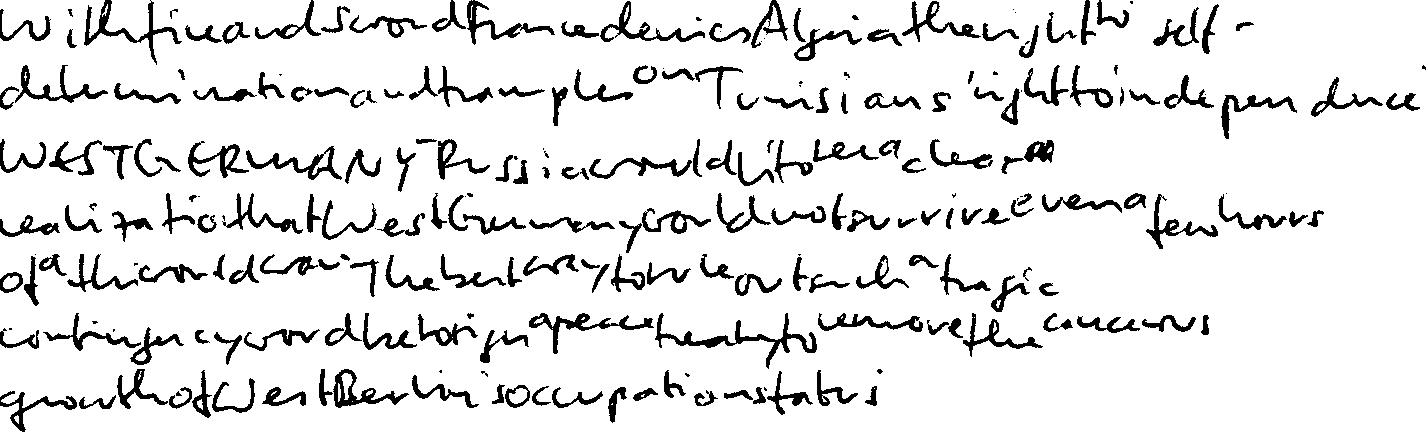 With fire and sword France denies Algeria the right to self-
determination and tramples on Tunisians' right to independence
WEST GERMANY Russia would like to be a clear
realization that West Germany would not survive even a few hours
of a third world war The best way to rule out such a tragic
contingency would be to sign a peace treaty to remove the cancerous
growth of West Berlin's occupation status